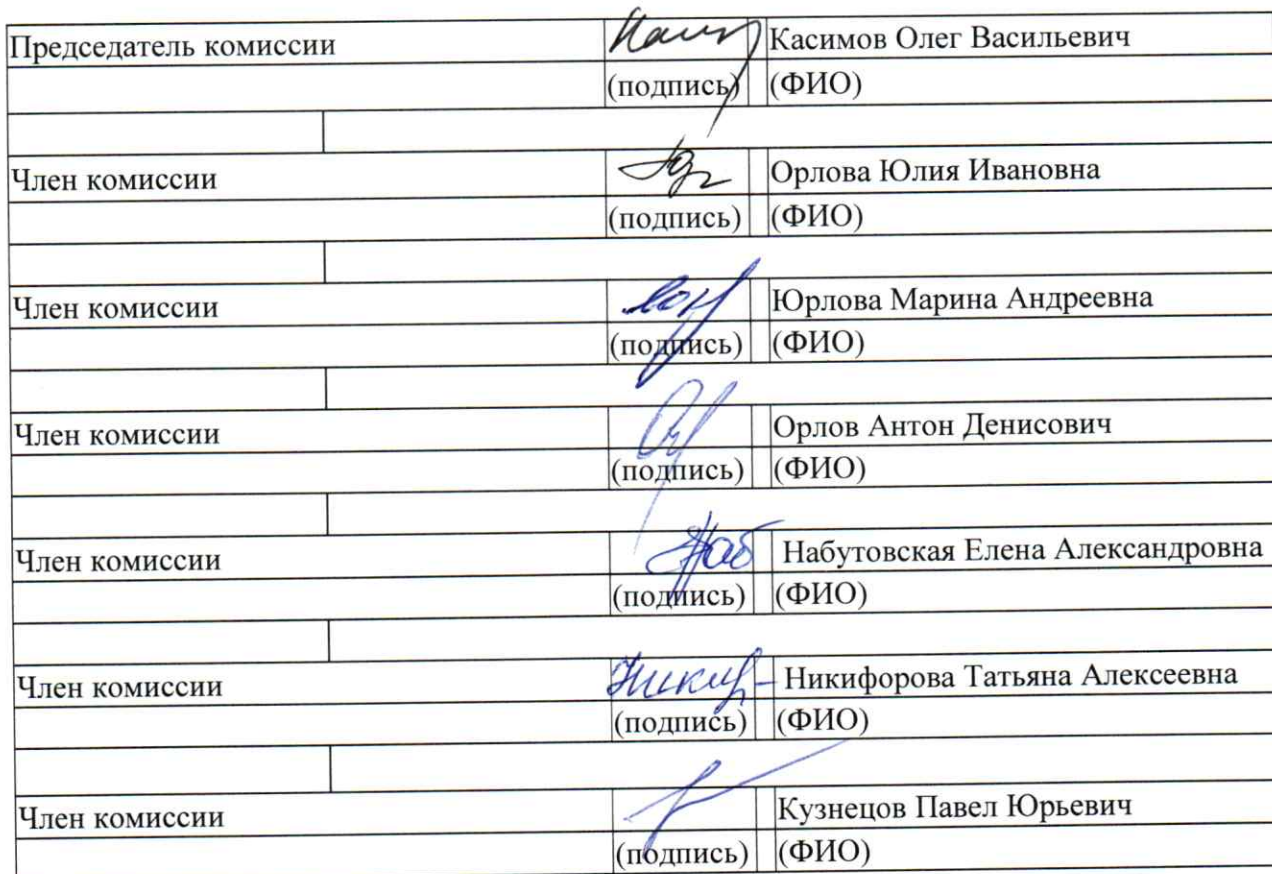 Председатель комиссии Касимов Олег Васильевич
(подпись) (ФИО)
Член комиссии Орлова Юлия Ивановна
(подпись) (ФИО)
Член комиссии Юрлова Марина Андреевна
(подпись) (ФИО)
Член комиссии Орлов Антон Денисович
(подпись) (ФИО)
Член комиссии Набутовская Елена Александровна
(подпись) (ФИО)
Член комиссии Никифорова Татьяна Алексеевна
(подпись) (ФИО)
Член комиссии Кузнецов Павел Юрьевич
(подпись) (ФИО)